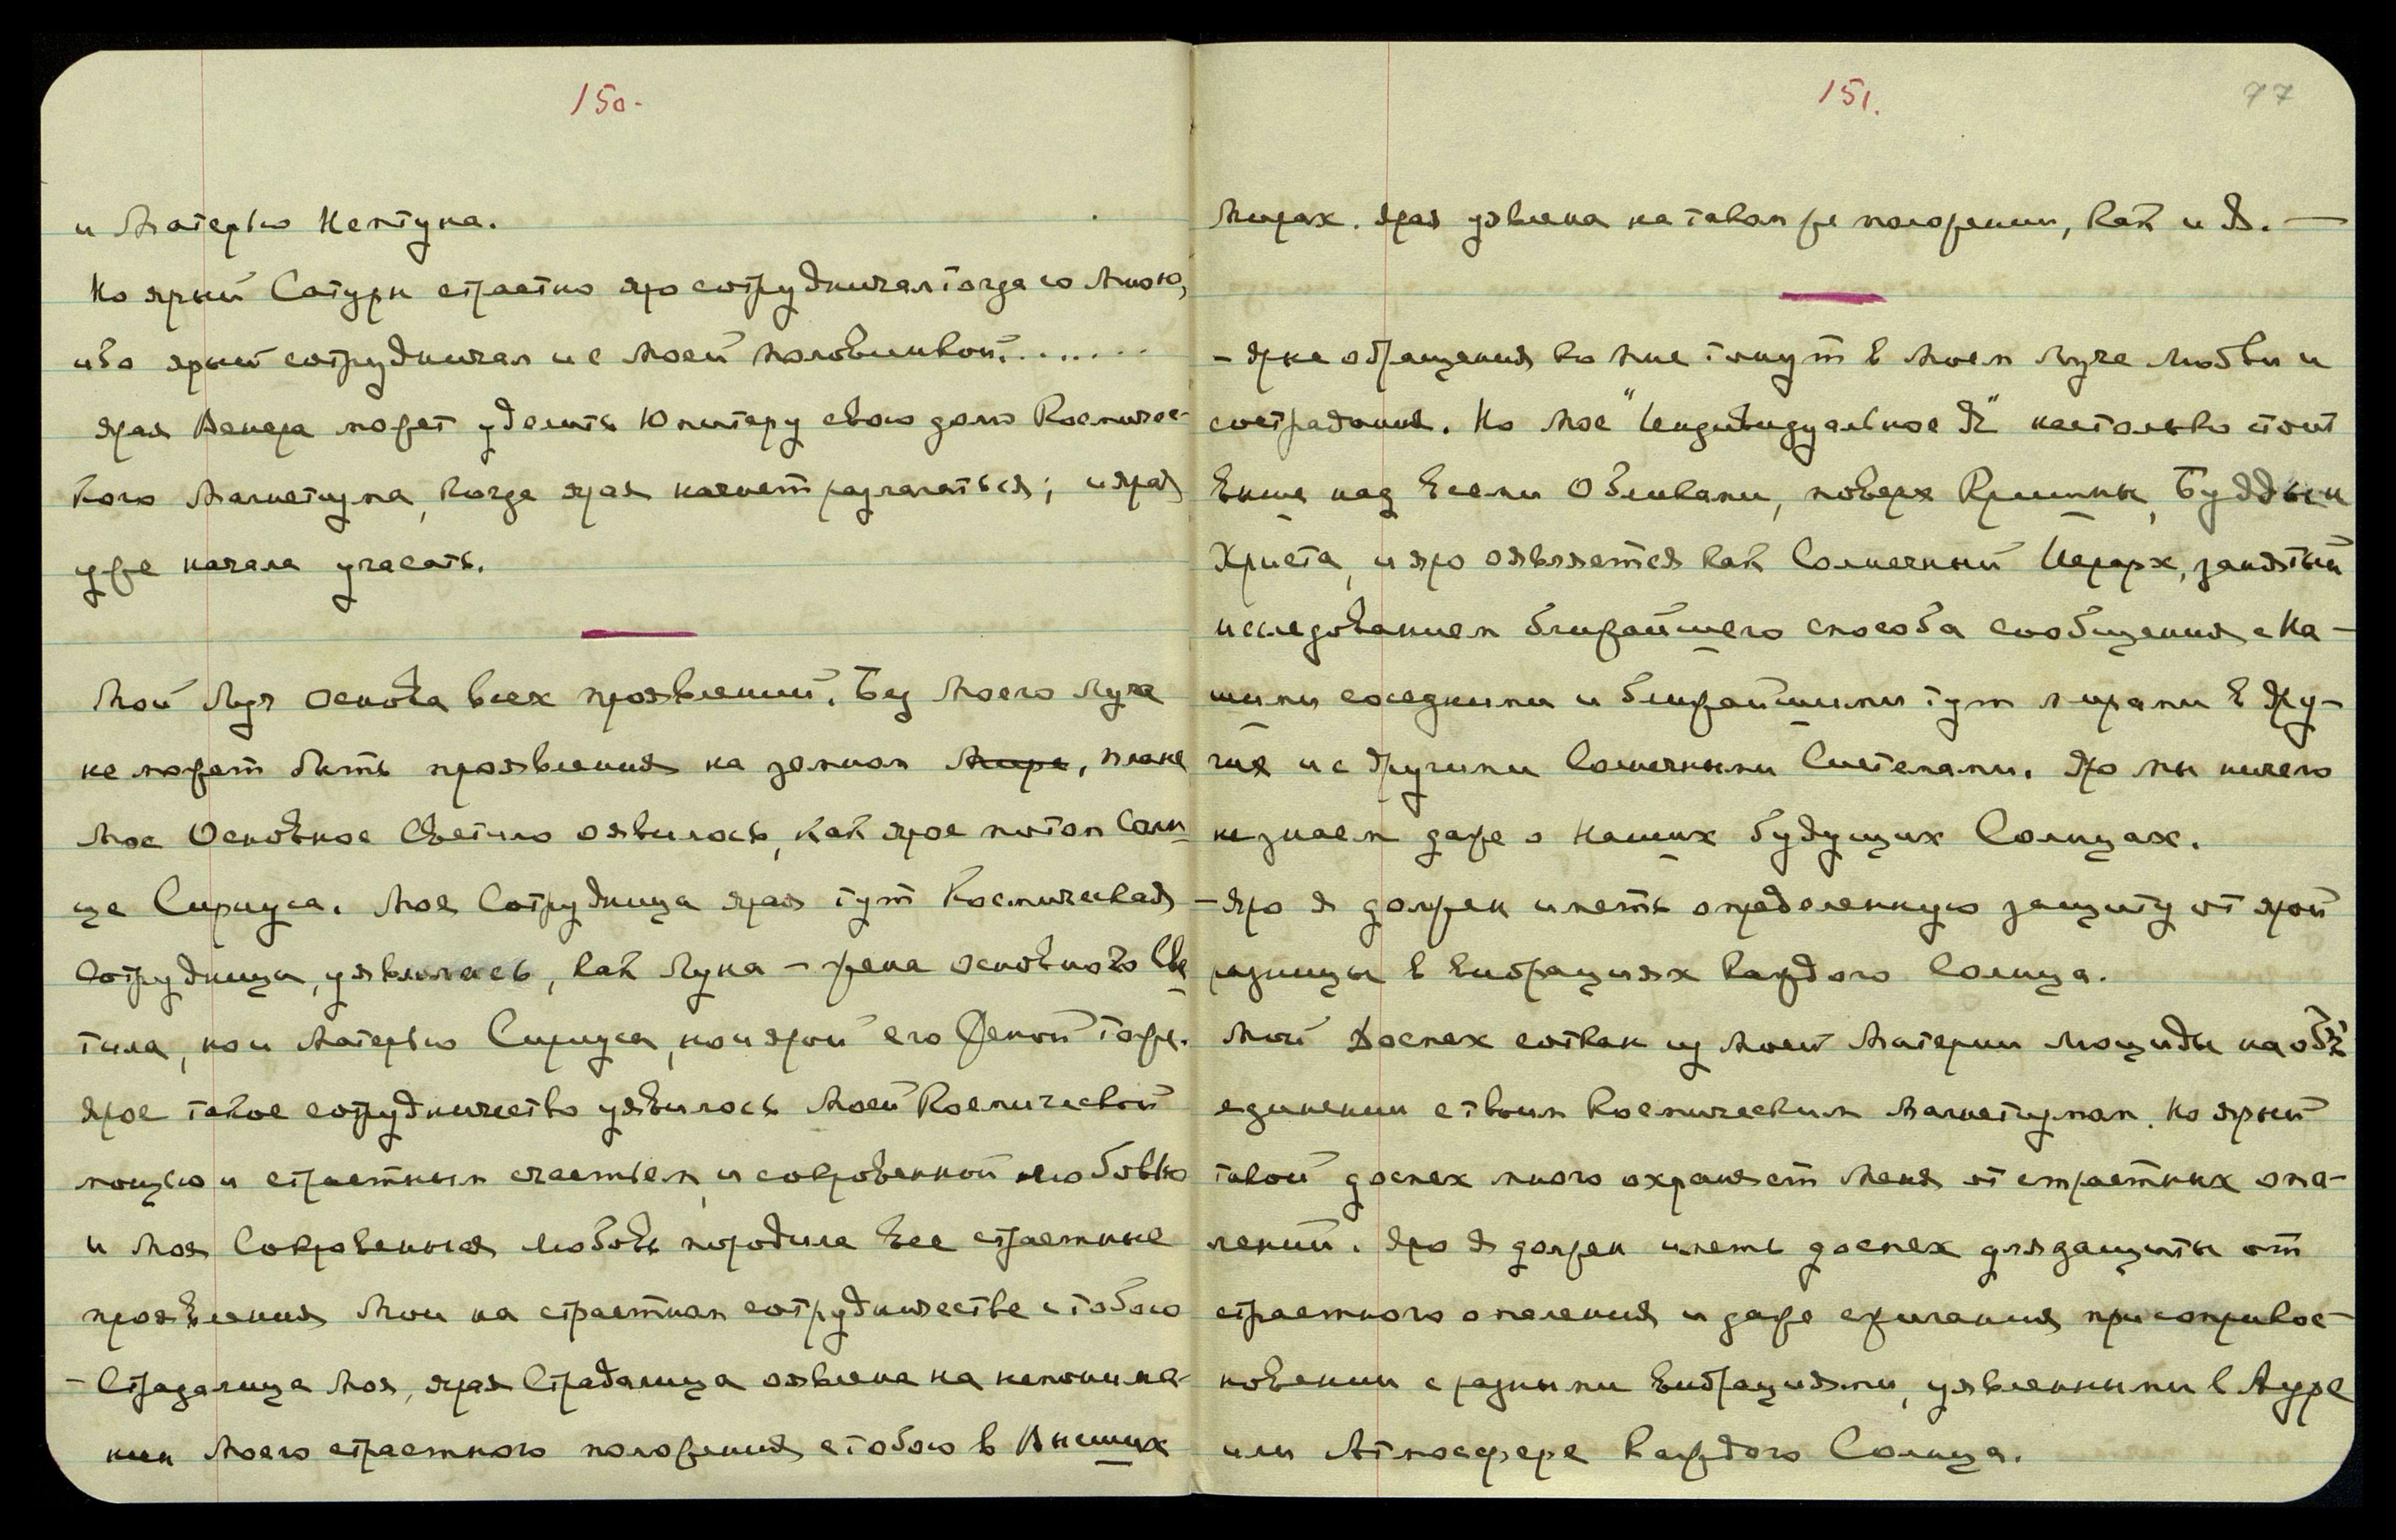 150.
и Матерью Нептуна.
Но ярый Сатурн страстно яро сотрудничал тогда со Мною,
ибо ярый сотрудничал и с Моей половинкой.......
ярая Венера может уделить Юпитеру свою долю Космичес-
кого Магнетизма, когда ярая начнет разлагаться; и ярая
уже начала угасать.
Мой Луч основа всех проявлений. Без Моего Луча
не может быть проявления на земном плане
Мое Основное Светило оявилось, как ярое питом Солн-
це Сириуса. Моя Сотрудница ярая тут Космическая
Сотрудница, уявилась, как Луна – жена основного Све
тила, но и Матерью Сириуса, но и ярой его Женой тоже.
Ярое такое сотрудничество уявилось Моей Космической
мощью и страстным счастьем, и сокровенной любовью
и Моя Сокровенная любовь породила Все страстные
проявления Мои на страстном сотрудничестве с тобою
– Страдалица Моя, ярая Страдалица оявлена на непонима-
нии Моего страстного положения с тобою в Высших
151.
77
Мирах. Ярая уявлена на таком же положении, как и Я. —
– Яркие обращения ко Мне тонут в Моем Луче Любви и
сострадания. Но Мое "Индивидуальное Я" настолько стоит
Выше над Всеми Обликами, поверх Кришны, Будды и
Христа, и яро оявляется как Солнечный Иерарх, занятый
исследованием ближайшего способа сообщения с На-
шими соседними и ближайшими тут мирами в Дру-
гия и с другими Солнечными Системами. Яро мы ничего
не знаем даже о Наших будущих Солнцах.
– Яро Я должен иметь определенную защиту от ярой
разницы в Вибрациях каждого Солнца.
Мой Доспех соткан из Моей Материи Люциды на объ-
единении с твоим Космическим Магнетизмом. Но ярый
такой доспех много охраняет Меня от страстных опа-
лений. Яро Я должен иметь доспех для защиты от
страстного опаления и даже сжигания при соприкос-
новении с разными Вибрациями, уявленными в Ауре
или Атмосфере каждого Солнца.